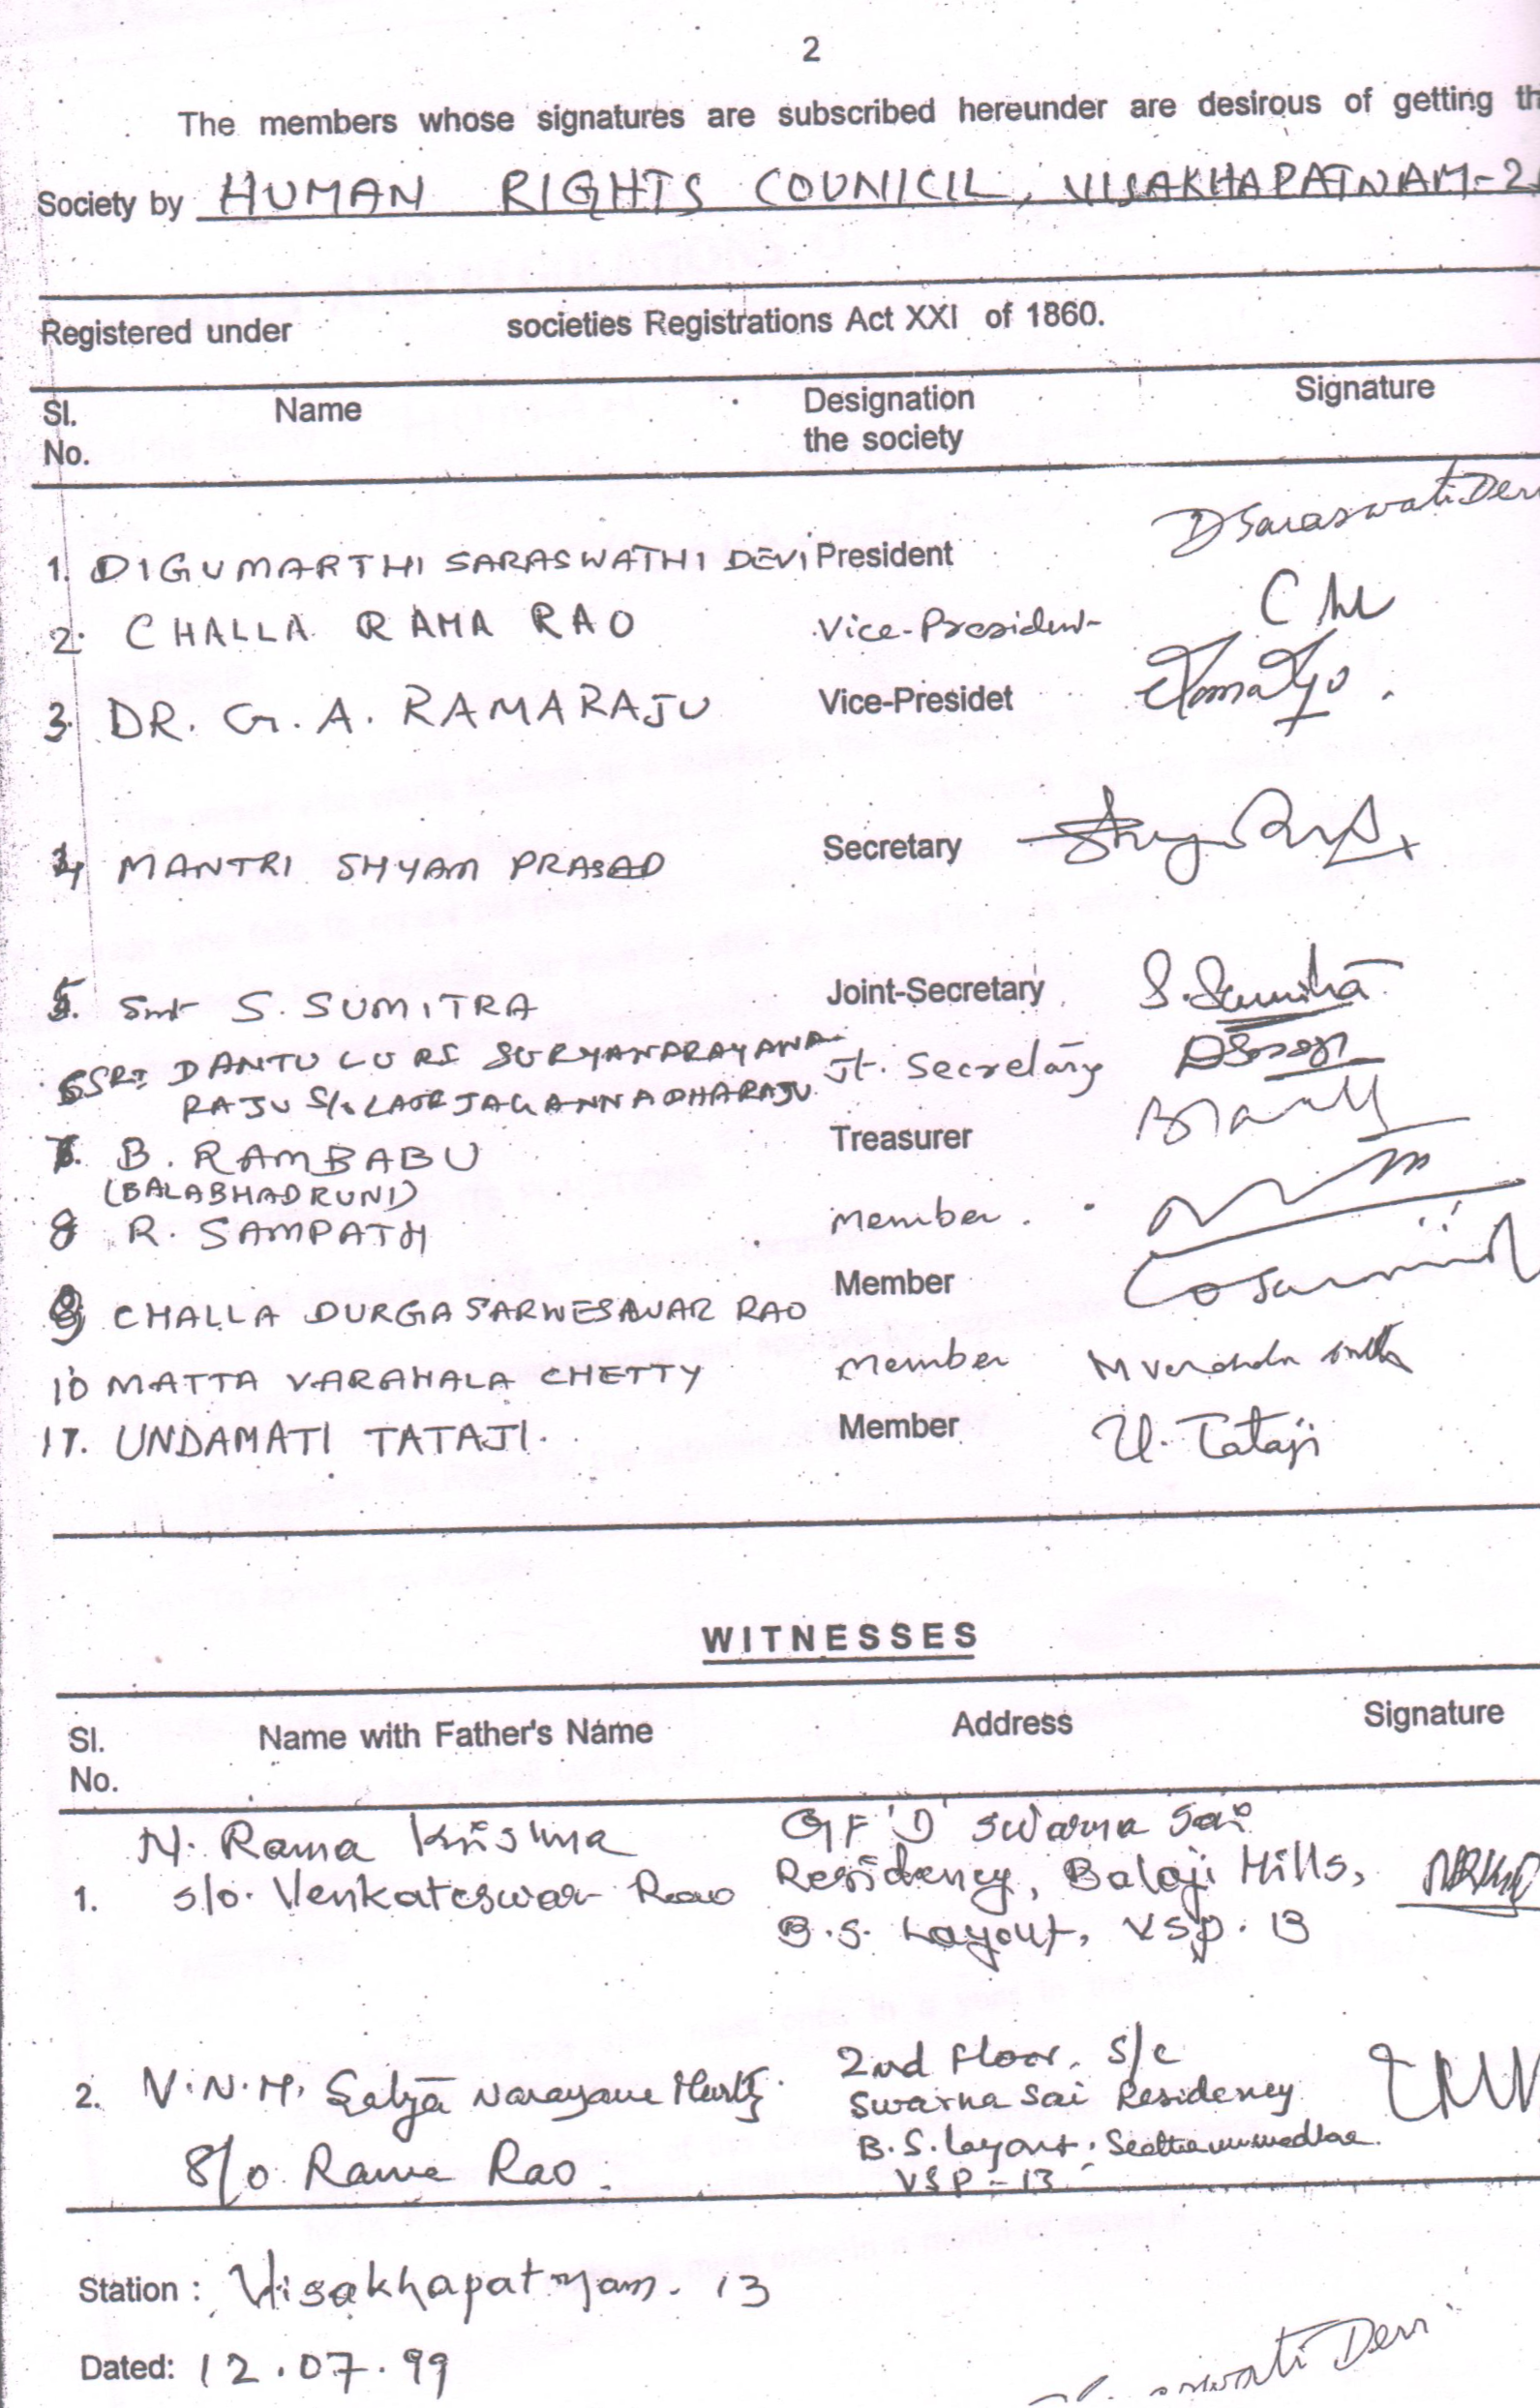 2
The members whose signatures are subscribed hereunder are desirous of getting th
Society by HUMAN RIGHTS COUNICIL, VISAKHAPATNAM-2
Registered under societies Registrations Act XXI of 1860.
Sl. No. Name Designation the society Signature
1. DIGUMARTHI SARASWATHI DEVI President DSaraswati Devi
2. CHALLA RAMA RAO Vice-President
3. DR. G. A. RAMARAJU Vice-Presidet
4 MANTRI SHYAM PRASAD Secretary
5. Smt S. SUMITRA Joint-Secretary S. Sumitra
6 SRI DANTULURI SURYANARAYANA Jt. Secretary
RAJU S/o LATE JAGANNADHARAJU
7. B. RAMBABU Treasurer
(BALABHADRUNI)
8 R. SAMPATH Member.
9 CHALLA DURGA SARWESAWAR RAO Member
10 MATTA VARAHALA CHETTY Member
11. UNDAMATI TATAJI. Member U. Tataji
WITNESSES
Sl. No. Name with Father's Name Address Signature
N. Rama Krishna GF 'D' Swarna Sai
1. S/o. Venkateswar Rao Residency, Balaji Hills,
B.S. Layout, VSP. 13
2. V.N.M. Satya Narayana Murty. 2nd Floor, S/c
Swarna Sai Residency
B.S. Layout, Seethammadhara
S/o Rama Rao. VSP-13
Station : Visakhapatnam. 13
Dated: 12.07.99